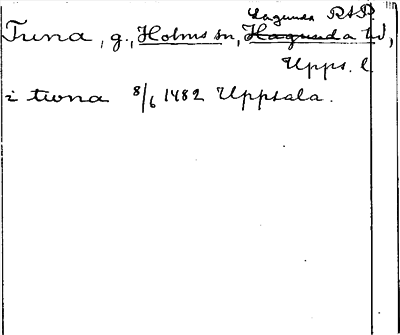 Lagunda RAP.
Tuna, g., Holms sn, Hagunda hd,
Upps. l.
i twna 8/6 1482 Uppsala.